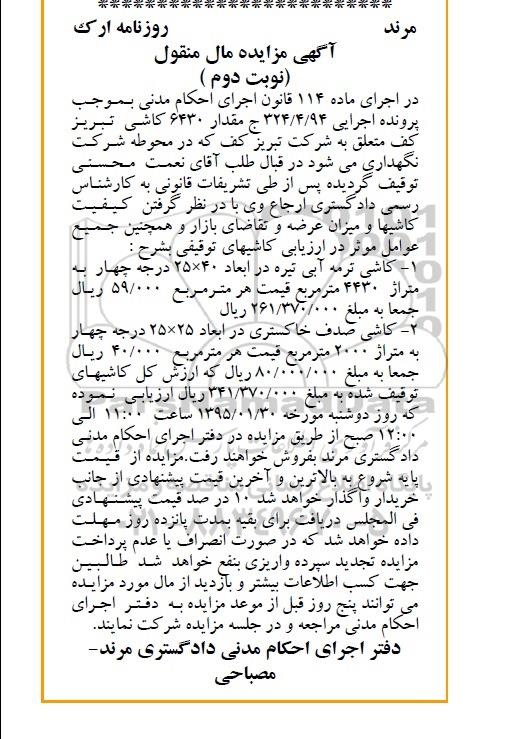 مرند روزنامه ارک
آگهی مزایده مال منقول
(نوبت دوم )
در اجرای ماده ۱۱۴ قانون اجرای احکام مدنی بموجب
پرونده اجرایی ۳۲۴/۴/۹۴ ج مقدار ۶۴۳۰ کاشی تبریز
کف متعلق به شرکت تبریز کف که در محوطه شرکت
نگهداری می شود در قبال طلب آقای نعمت محسنی
توقیف گردیده پس از طی تشریفات قانونی به کارشناس
رسمی دادگستری ارجاع وی با در نظر گرفتن کیفیت
کاشیها و میزان عرضه و تقاضای بازار و همچنین جمیع
عوامل موثر در ارزیابی کاشیهای توقیفی بشرح :
۱- کاشی ترمه آبی تیره در ابعاد ۴۰×۲۵ درجه چهار به
متراژ ۴۴۳۰ مترمربع قیمت هر مترمربع ۵۹/۰۰۰ ریال
جمعا به مبلغ ۲۶۱/۳۷۰/۰۰۰ ریال
۲- کاشی صدف خاکستری در ابعاد ۲۵×۲۵ درجه چهار
به متراژ ۲۰۰۰ مترمربع قیمت هر مترمربع ۴۰/۰۰۰ ریال
جمعا به مبلغ ۸۰/۰۰۰/۰۰۰ ریال که ارزش کل کاشیهای
توقیف شده به مبلغ ۳۴۱/۳۷۰/۰۰۰ ریال ارزیابی نموده
که روز دوشنبه مورخه ۱۳۹۵/۰۱/۳۰ ساعت ۱۱:۰۰ الی
۱۲:۰۰ صبح از طریق مزایده در دفتر اجرای احکام مدنی
دادگستری مرند بفروش خواهند رفت.مزایده از قیمت
پایه شروع به بالاترین و آخرین قیمت پیشنهادی از جانب
خریدار واگذار خواهد شد ۱۰ در صد قیمت پیشنهادی
فی المجلس دریافت برای بقیه بمدت پانزده روز مهلت
داده خواهد شد که در صورت انصراف یا عدم پرداخت
مزایده تجدید سپرده واریزی بنفع خواهد شد طالبین
جهت کسب اطلاعات بیشتر و بازدید از مال مورد مزایده
می توانند پنج روز قبل از موعد مزایده به دفتر اجرای
احکام مدنی مراجعه و در جلسه مزایده شرکت نمایند.
دفتر اجرای احکام مدنی دادگستری مرند-
مصباحی